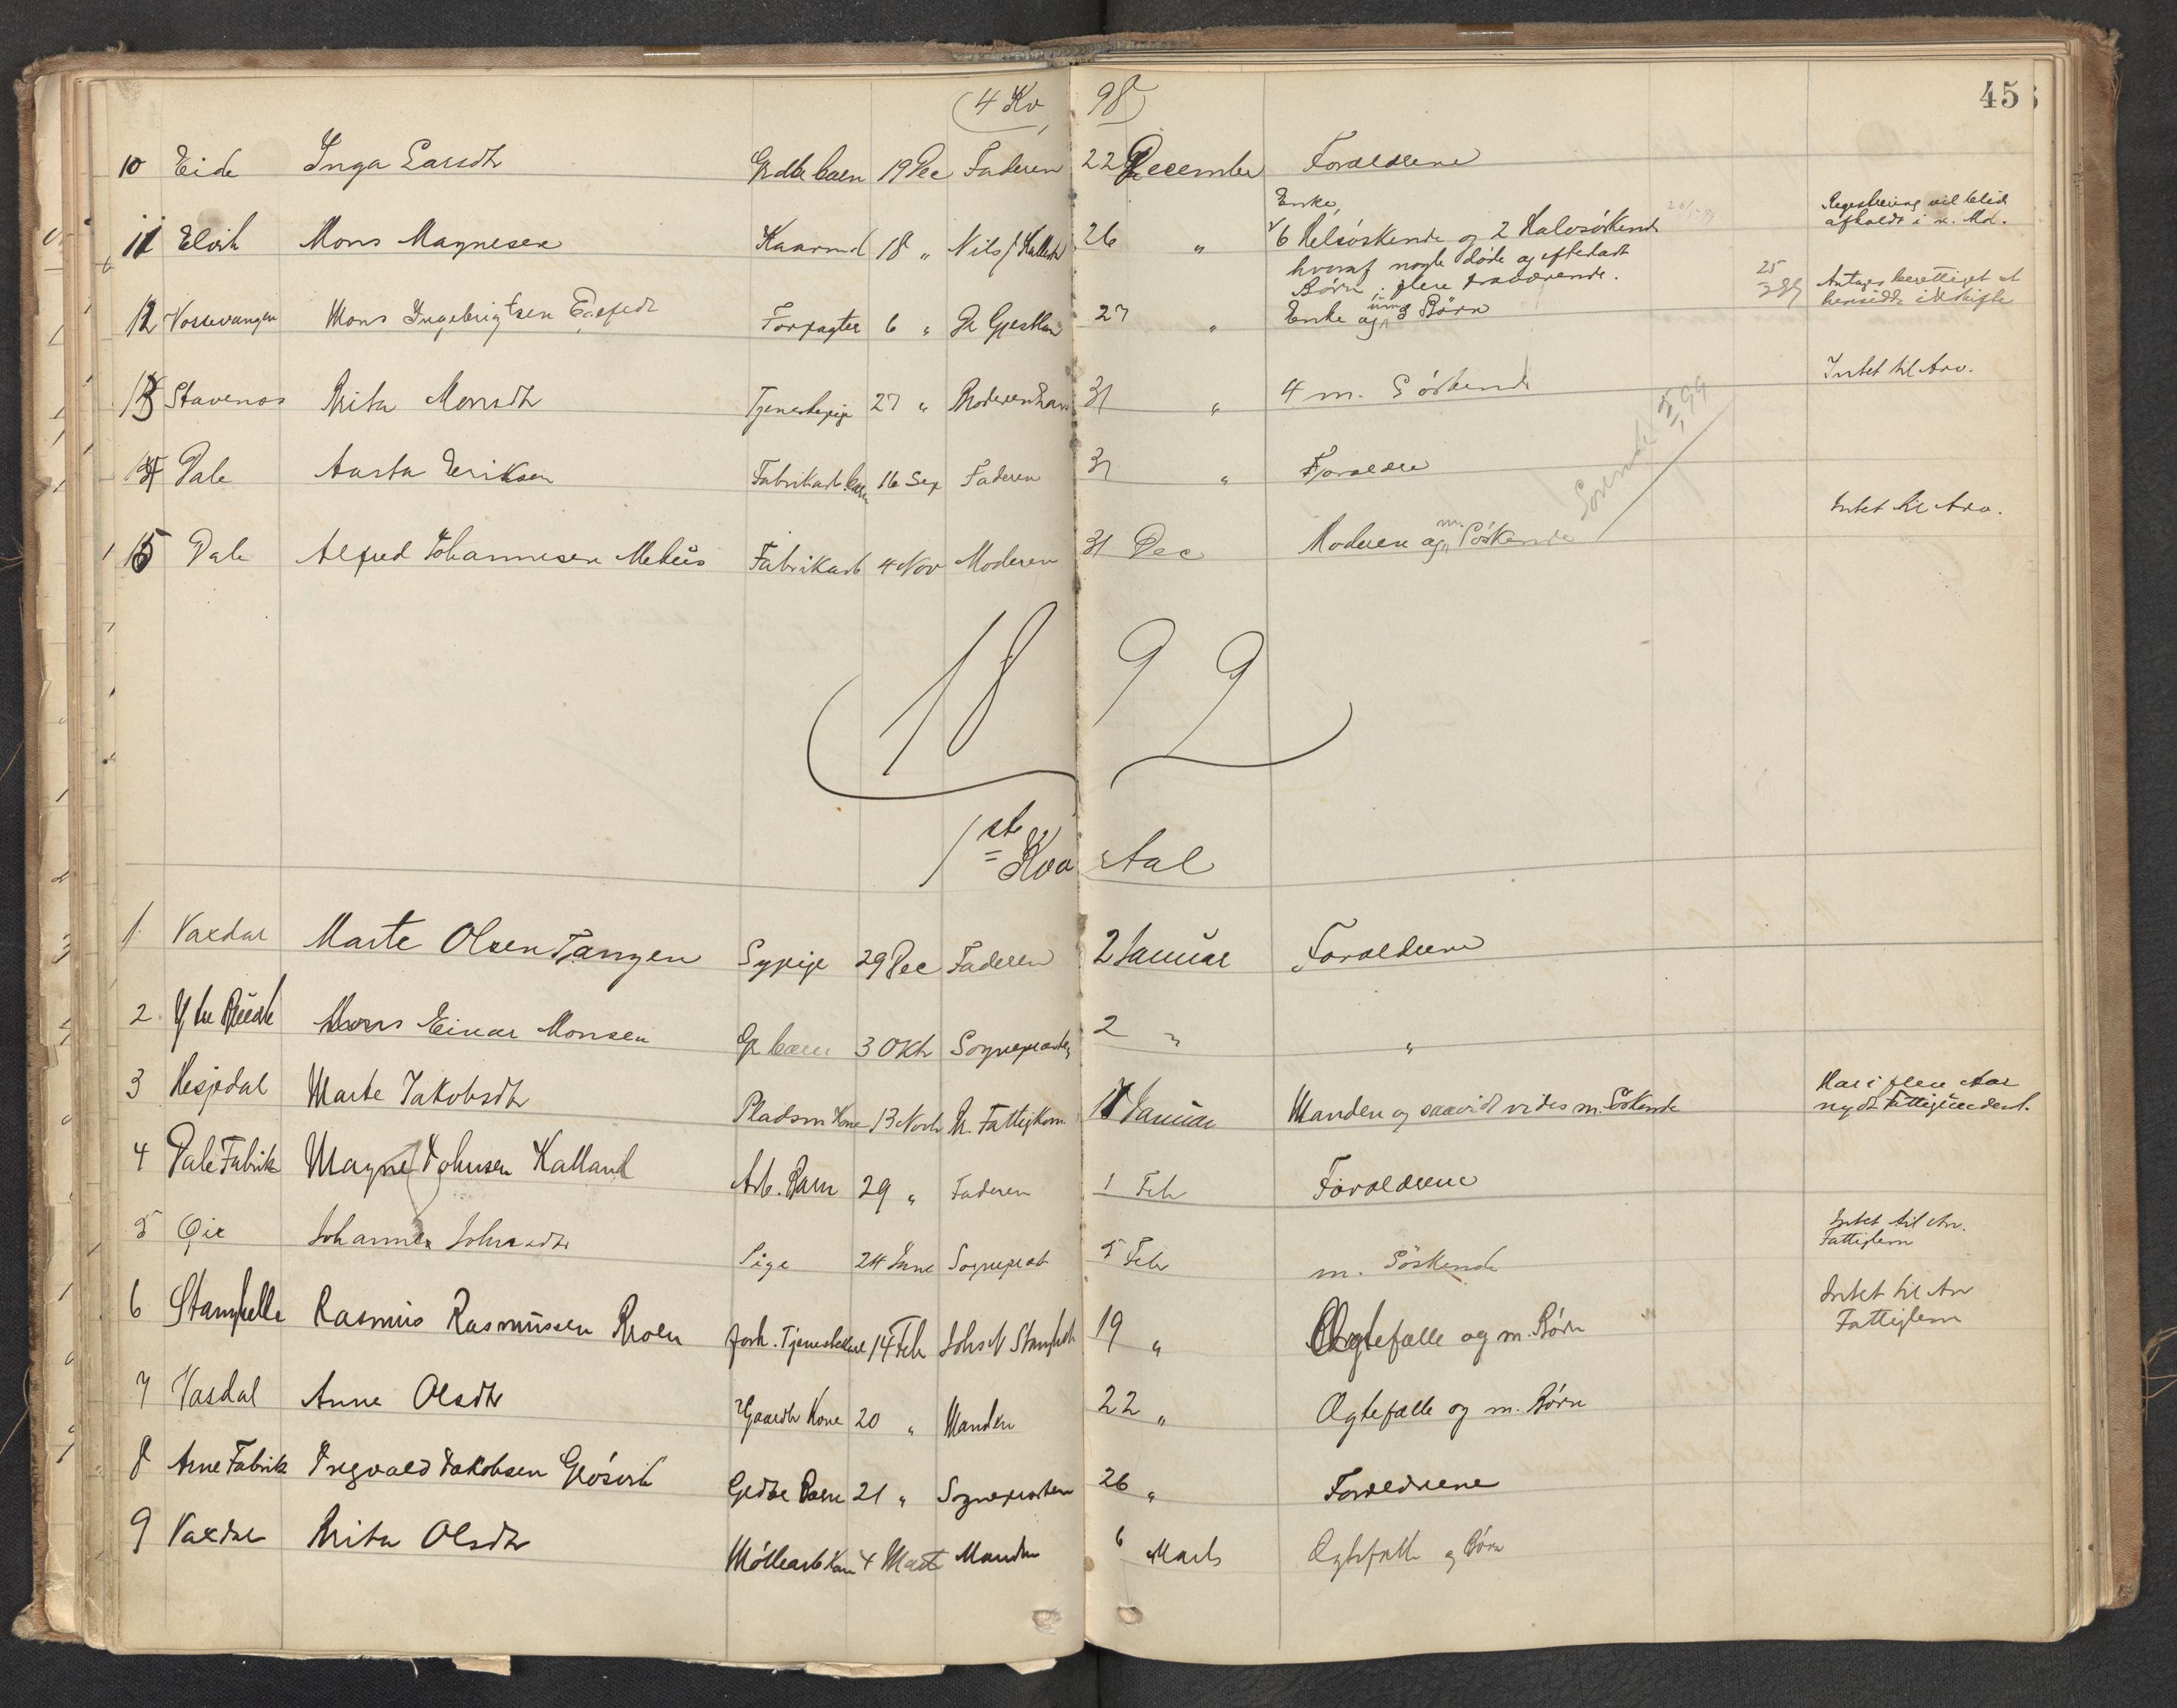 45
(4 Kv 98)
10 Eide Inga Larsdtr Grdbr barn 19 Dec Faderen 22 December Forældrene
11 Elvik Mons Magnesen Kaarmd 18 " Nils J Kallestd 26 " Enke,
6 Helsøskende og 2 Halvsøskende
hvoraf nogle døde og efterladt
Børn, flere fraværende.
Registrering vil blive
afholdt i n. Md.
12 Vossevangen Mons Ingebrigtsen Forpagter 6 " 27 " Enke og umg 3 Børn
25
Antages berettiget at
hensidde i uskifte
13 Stavenes Brita Monsdtr Tjenestepige 27 " Broderen 31 " 4 m. Søskende
Intet til Arv.
14 Dale Aasta Eriksen Fabrikarb. barn 16 Sep Faderen 31 " Forældre
15 Dale Alfred Johannesen Mehus Fabrikarb 4 Nov Moderen 31 Dec Moderen og m. Søskende
Intet til Arv.
1899
1ste Kvartal
1 Vaxdal Marte Olsen Tangen Sypige 29 Dec Faderen 2 Januar Forældrene
2 Mons Einar Monsen Gr barn 3 Okt Sognepresten 2 " "
3 Hesjedal Marte Jakobsdtr Pladsm Kone 13 Novb Fattigkom. 17 Januar Manden og saavidt vides m. Søskende
Har i flere Aar
nydt Fattigunderst.
4 Dale Fabrik Magne Johnsen Kalland Arb. Barn 29 " Faderen 1 Feb Forældrene
5 Johanna Johnsdtr Pige 24 Sognepræst 5 Feb m. Søskende
Intet til Arv.
Fattiglem
6 Stamphelle Rasmus Rasmussen Moen forh. Tjenestekarl 14 Feb Johs N Stamphelle 19 " Ægtefælle og m. Børn
Intet til Arv
Fattiglem
7 Vaxdal Anne Olsdtr Gaardbr Kone 20 " Manden 22 " Ægtefælle og m. Børn
8 Arne Fabrik Ingvald Jakobsen Grøsvik Grdbr Barn 21 " Sognepresten 26 " Forældrene
9 Vaxdal Brita Olsdtr Møllearb Kone 4 Marts Manden 6 Marts Ægtefælle og Børn